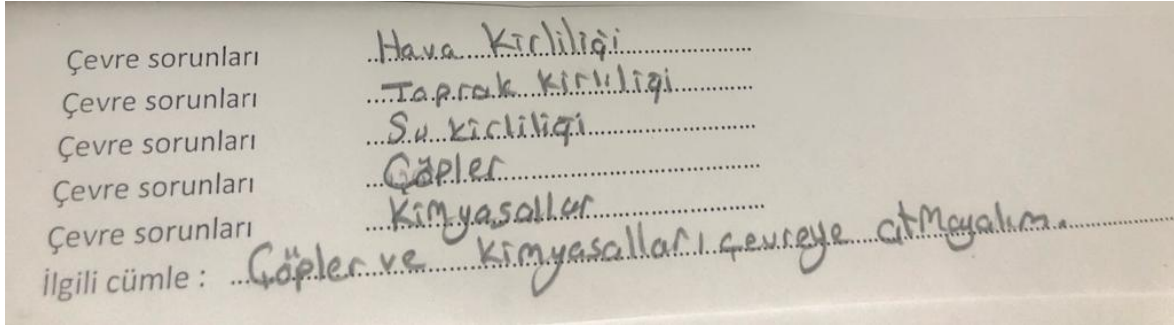 Çevre sorunları ..Hava Kirliliği....................
Çevre sorunları ....Taprak Kirliliği.............
Çevre sorunları ...Su kirliliği..........................
Çevre sorunları ...Çöpler......................................
Çevre sorunları ....Kimyasallar........................
İlgili cümle : ...Çöpler ve Kimyasalları çevreye atmayalım..................